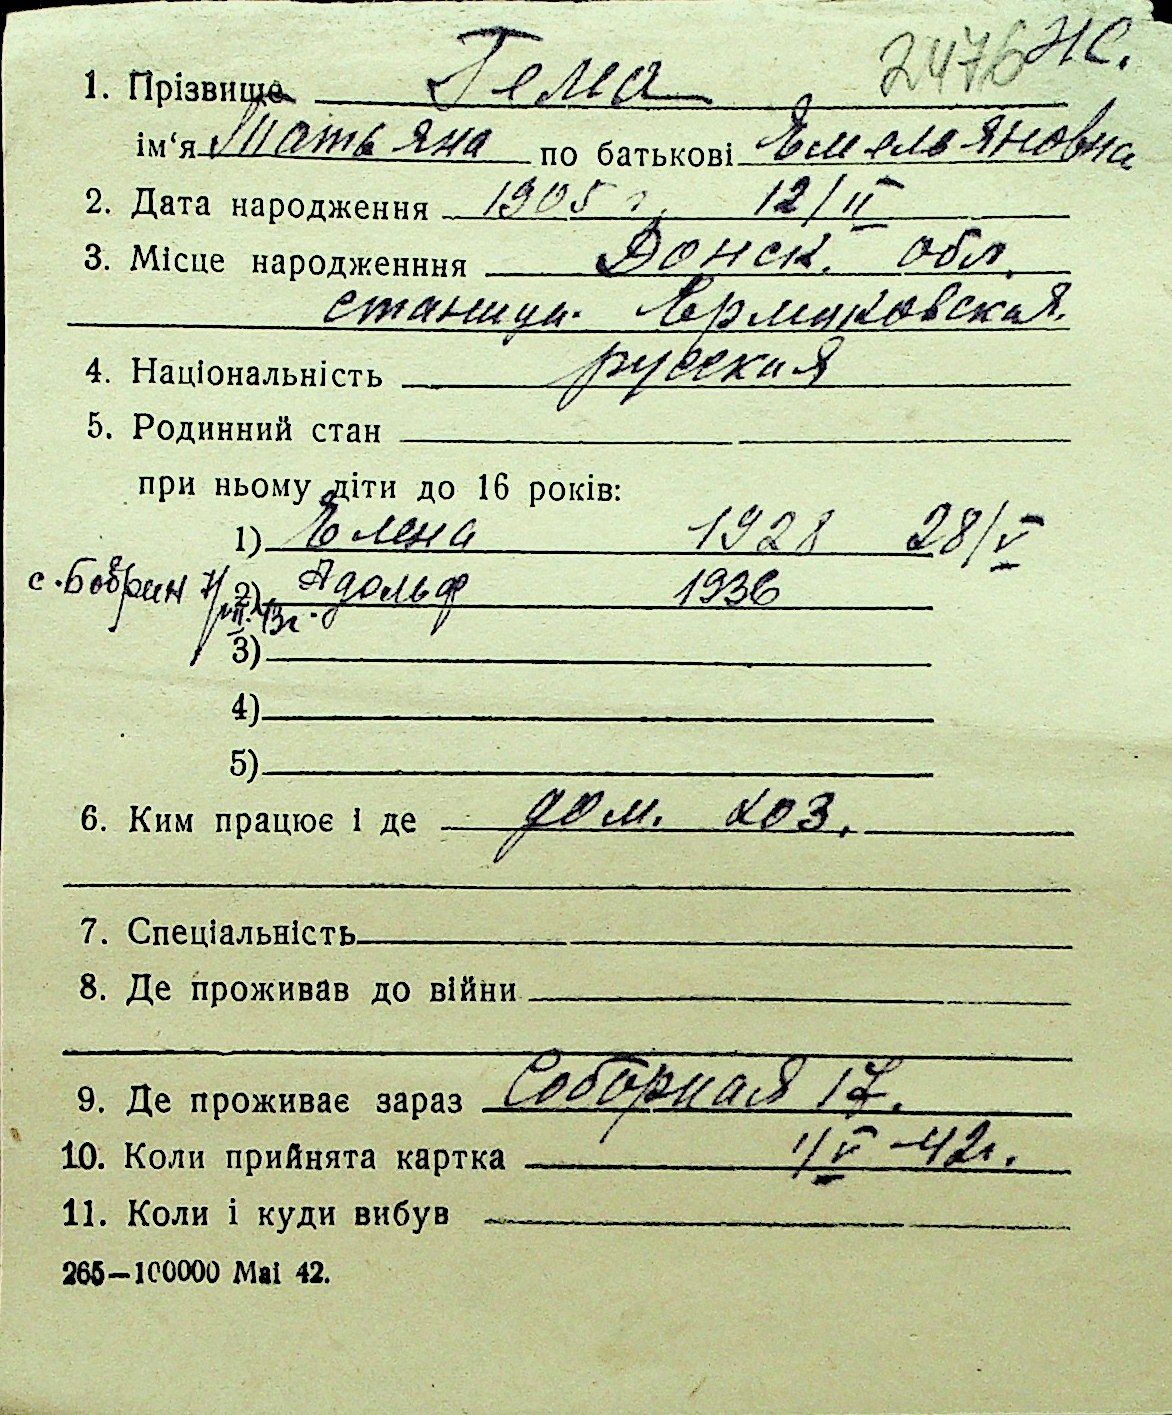 2476 Ж.
1. Прізвище Гема
ім‘я Татьяна по батькові Емельяновна
2. Дата народження 1905 г. 12/II
3. Місце народженння Донск. обл.
станица Ермаковская.
4. Національність русская
5. Родинний стан
при ньому діти до 16 років:
1) Елена 1928 28/V
с. Бобрин 2) Адольф 1936
3)
4)
5)
6. Ким працює і де дом. хоз.
7. Спеціальність
8. Де проживав до війни
9. Де проживає зараз Соборная 17.
10. Коли прийнята картка 1/V-42г.
11. Коли і куди вибув
265—100000 Mai 42.